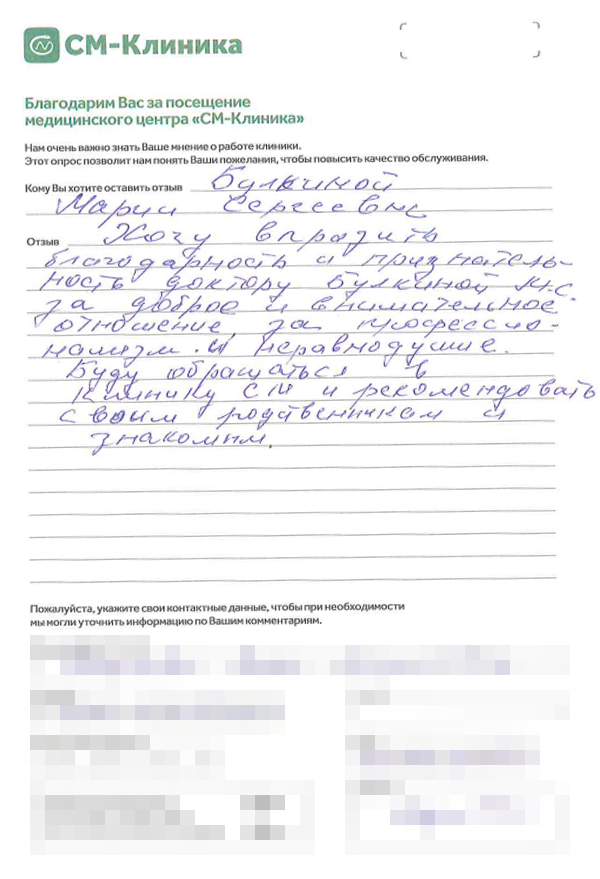 СМ-Клиника
Благодарим Вас за посещение
медицинского центра «СМ-Клиника»
Нам очень важно знать Ваше мнение о работе клиники.
Этот опрос позволит нам понять Ваши пожелания, чтобы повысить качество обслуживания.
Кому Вы хотите оставить отзыв Булкиной
Марии Сергеевне
Отзыв Хочу выразить
благодарность и признатель-
ность доктору Булкиной М.С.
за доброе и внимательное
отношение, за профессио-
нализм и неравнодушие.
Буду обращаться в
клинику СМ и рекомендовать
своим родственникам и
знакомым.
Пожалуйста, укажите свои контактные данные, чтобы при необходимости
мы могли уточнить информацию по Вашим комментариям.